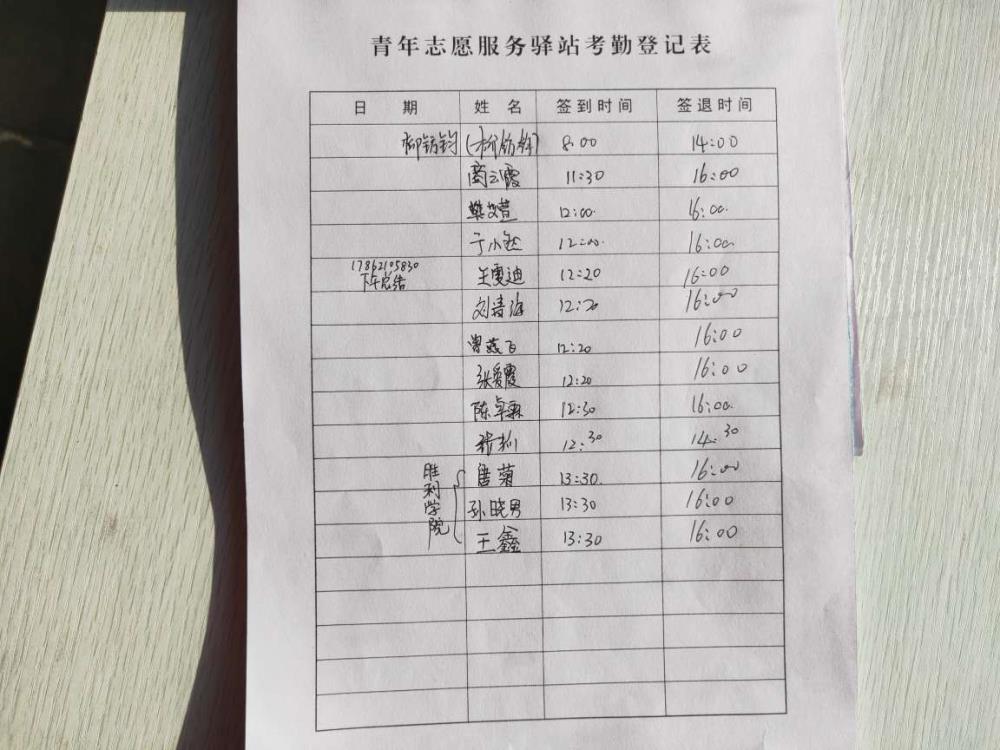 青年志愿服务驿站考勤登记表
日 期 姓 名 签到时间 签退时间
柳钫钧 8:00 14:00
商云霞 11:30 16:00
樊艾萱 12:00. 16:00.
于小 12:00. 16:00
17862105830
下午总结 王雯迪 12:20 16:00
刘清海 12:20 16:00
曾燕飞 12:20 16:00
张爱霞 12:20 16:00
陈卓霖 12:30 16:00.
12:30 14:30
胜利学院 唐菊 13:30. 16:00
孙晓男 13:30 16:00
王鑫 13:30 16:00